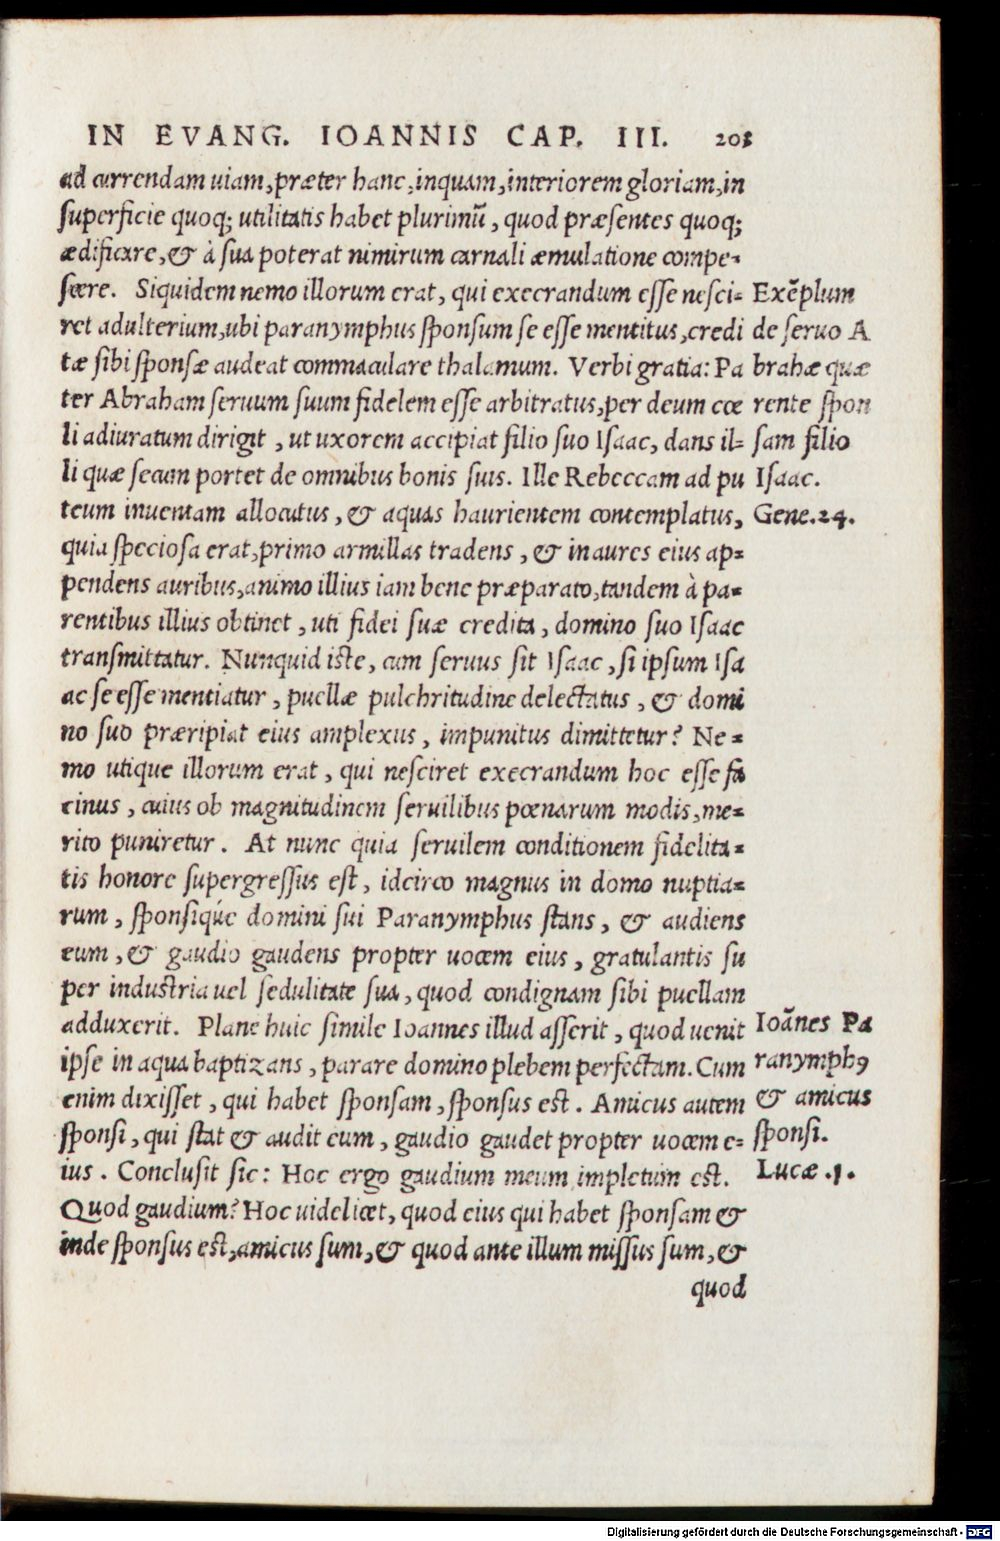 IN EVANG. IOANNIS CAP. III. 203
ad currendam uiam, præter hanc, inquam, interiorem gloriam, in
ſuperficie quoq; utilitatis habet plurimũ, quod præſentes quoq;
ædificare, & à ſua poterat nimirum carnali æmulatione compe-
ſcere. Siquidem nemo illorum erat, qui execrandum eſſe neſci-
ret adulterium, ubi paranymphus ſponſum ſe eſſe mentitus, credi
tæ ſibi ſponſæ audeat commaculare thalamum. Verbi gratia: Pa
ter Abraham ſeruum ſuum fidelem eſſe arbitratus, per deum cœ
li adiuratum dirigit, ut uxorem accipiat filio ſuo Iſaac, dans il-
li quæ ſecum portet de omnibus bonis ſuis. Ille Rebeccam ad pu
teum inuentam allocutus, & aquas haurientem contemplatus,
quia ſpecioſa erat, primo armillas tradens, & inaures eius ap-
pendens auribus, animo illius iam bene præparato, tandem à pa-
rentibus illius obtinet, uti fidei ſuæ credita, domino ſuo Iſaac
tranſmittatur. Nunquid iſte, cum ſeruus ſit Iſaac, ſi ipſum Iſa
ac ſe eſſe mentiatur, puellæ pulchritudine delectatus, & domi
no ſuo præripiat eius amplexus, impunitus dimittetur? Ne-
mo utique illorum erat, qui neſciret execrandum hoc eſſe fa
cinus, cuius ob magnitudinem ſeruilibus pœnarum modis, me-
rito puniretur. At nunc quia ſeruilem conditionem fidelita-
tis honore ſupergreſſus eſt, idcirco magnus in domo nuptia-
rum, ſponſiq́ue domini ſui Paranymphus ſtans, & audiens
eum, & gaudio gaudens propter uocem eius, gratulantis ſu
per induſtria uel ſedulitate ſua, quod condignam ſibi puellam
adduxerit. Plane huic ſimile Ioannes illud aſſerit, quod uenit
ipſe in aqua baptizans, parare domino plebem perfectam. Cum
enim dixiſſet, qui habet ſponſam, ſponſus eſt. Amicus autem
ſponſi, qui ſtat & audit eum, gaudio gaudet propter uocem e-
ius. Concluſit ſic: Hoc ergo gaudium meum impletum eſt.
Quod gaudium? Hoc uidelicet, quod eius qui habet ſponſam &
inde ſponſus eſt, amicus ſum, & quod ante illum miſſus ſum, &
quod
Exẽplum
de ſeruo A
brahæ quæ
rente ſpon
ſam filio
Iſaac.
Gene.24.
Ioãnes Pa
ranymphꝰ
& amicus
ſponſi.
Lucæ.1.
Digitalisierung gefördert durch die Deutsche Forschungsgemeinschaft - DFG